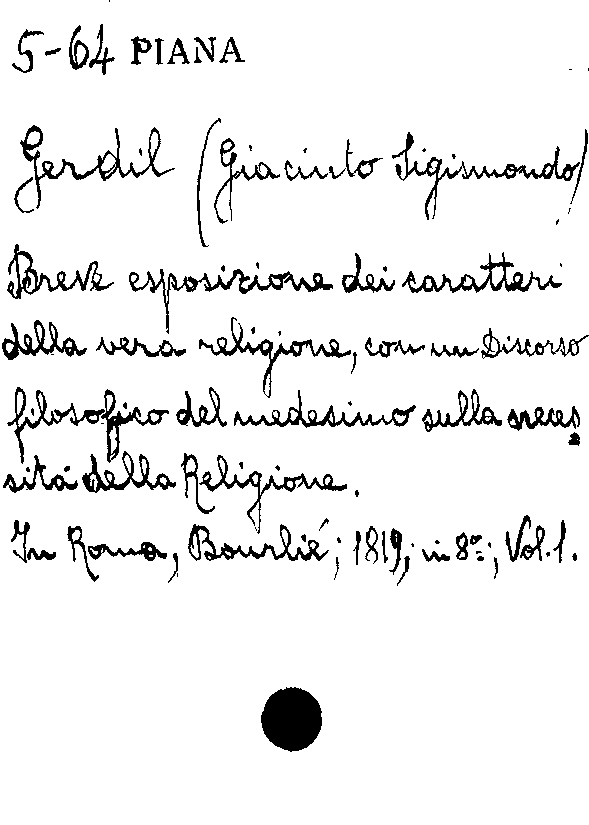 5-64 PIANA
Gerdil (Giacinto Sigismondo)
Breve esposizione dei caratteri
della vera religione, con un Discorso
filosofico del medesimo sulla neces
sitá della Religione.
In Roma, Bourlié; 1819; in 8º:; Vol. 1.